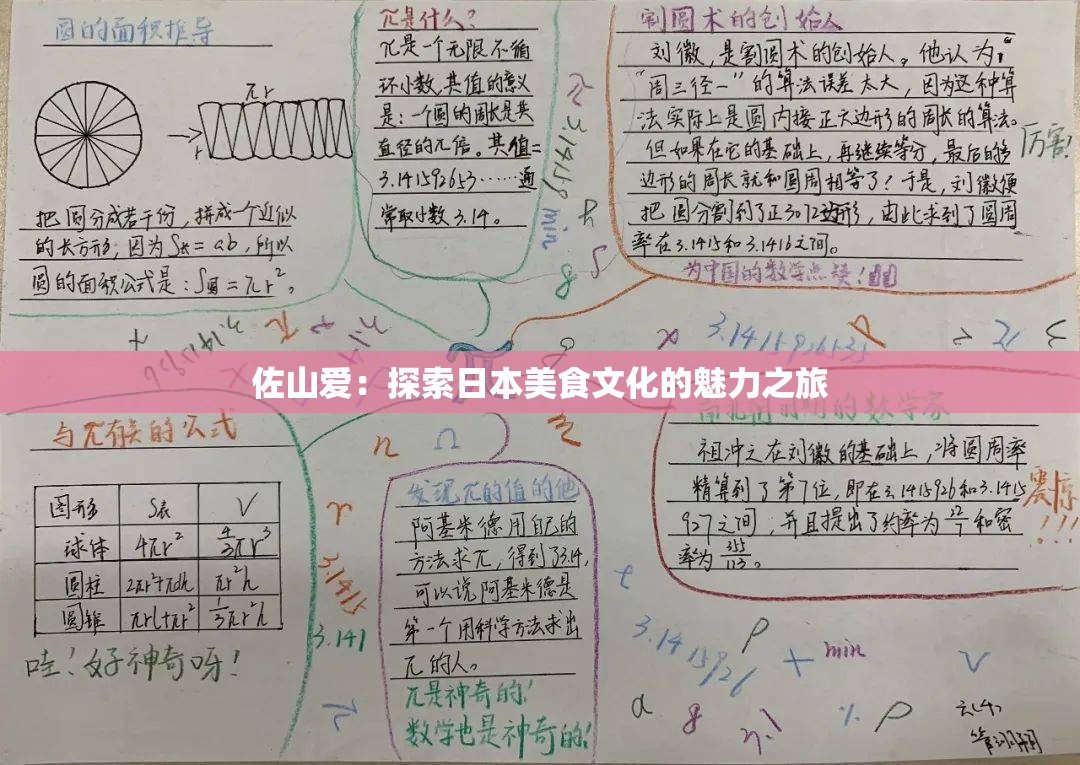 圆的面积推导
πr
r
把圆分成若干份，拼成一个近似
的长方形；因为S长=ab，所以
圆的面积公式是：S圆=πr²。
π是什么？
π是一个无限不循
环小数，其值的意义
是：一个圆的周长是其
直径的π倍。其值=
3.141592653……通
常取小数3.14。
π 3.14159 min
割圆术的创始人
刘徽，是割圆术的创始人。他认为：
"周三径一"的算法误差太大，因为这种算
法实际上是圆内接正六边形的周长的算法。
但如果在它的基础上，再继续等分，最后的
边形的周长就和圆周相等了！于是，刘徽便
把圆分割到了正3072边形，由此求到了圆周
率在3.1415和3.1416之间。
为中国的数学点赞！
厉害！
3.1415926535
佐山爱：探索日本美食文化的魅力之旅
与π有关的公式
图形 S表 V
球体 4πr² 4/3πr³
圆柱 2πr²+πdh πr²h
圆锥 πrl+πr² 1/3πr²h
哇！好神奇呀！
n Ω
r
3.1415
3.141
π
发现π的值的他
阿基米德用自己的
方法求π，得到了3.14，
可以说阿基米德是
第一个用科学方法求出
π的人。
π是神奇的！
数学也是神奇的！
的数学家
祖冲之在刘徽的基础上，将圆周率
精算到了第7位，即在3.1415926和3.1415
927之间，并且提出了约率为22/7和密
率为355/113。
震惊
!!!
t
3.1415926
ρ
+ min
V
a 8
% ρ